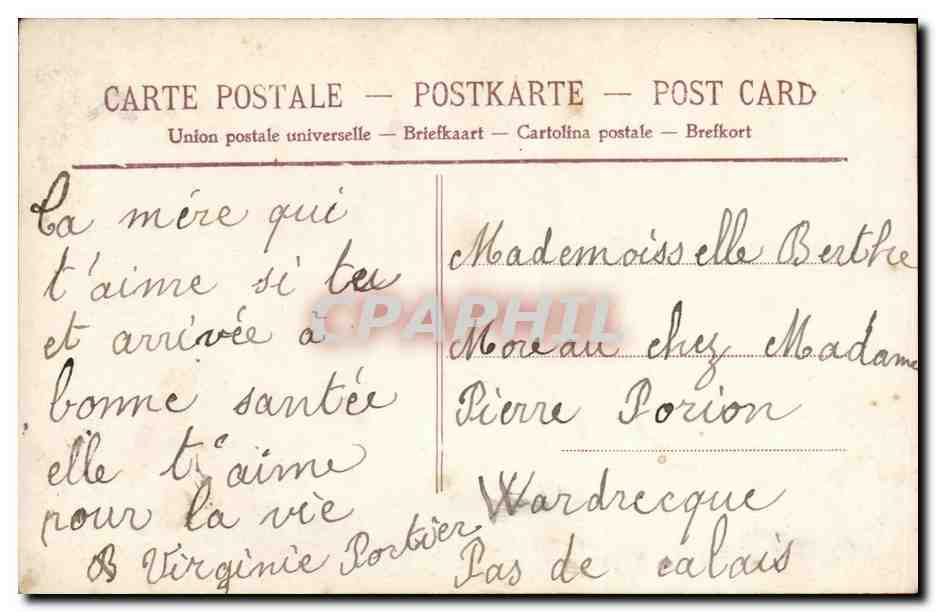 CARTE POSTALE — POSTKARTE — POST CARD
Union postale universelle — Briefkaart — Cartolina postale — Brefkort
Ta mére qui
t'aime si tu
et arrivée à
bonne santée
elle t'aime
pour la vie
B Virginie Portier
Mademoisselle Berthe
Moreau chez Madame
Pierre Porion
Wardrecque
Pas de calais
CPAPHIL